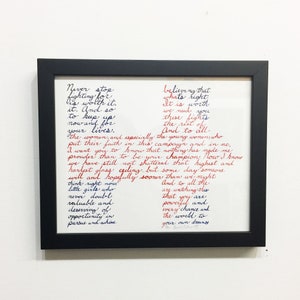 Never stop believing that
fighting for what's right
is worth it. It is worth
it. And so we need you
to keep up these fights
now and for the rest of
your lives. And to all
the women, and especially the young women who
put their faith in this campaign and in me,
I want you to know that nothing has made me
prouder than to be your champion. Now I know
we have still not shattered that highest and
hardest glass ceiling but some day someone
will and hopefully sooner than we might
think right now. And to all the
little girls who
never doubt that you are
valuable and powerful and
deserving of every chance and
opportunity in the world to
pursue and achieve your own dreams